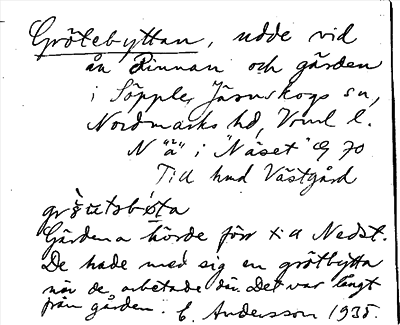 Grötebyttan, udde vid
ån Rinnan och gården
i Söpple, Järnskogs sn,
Nordmarks hd, Vrml l.
N "ä" i "Näset" Eg 70
Till hmd Västgård
Gårdena hörde förr till Nedst.
De hade med sig en grötbytta
när de arbetade där. Det var långt
från gården. E. Andersson 1935.